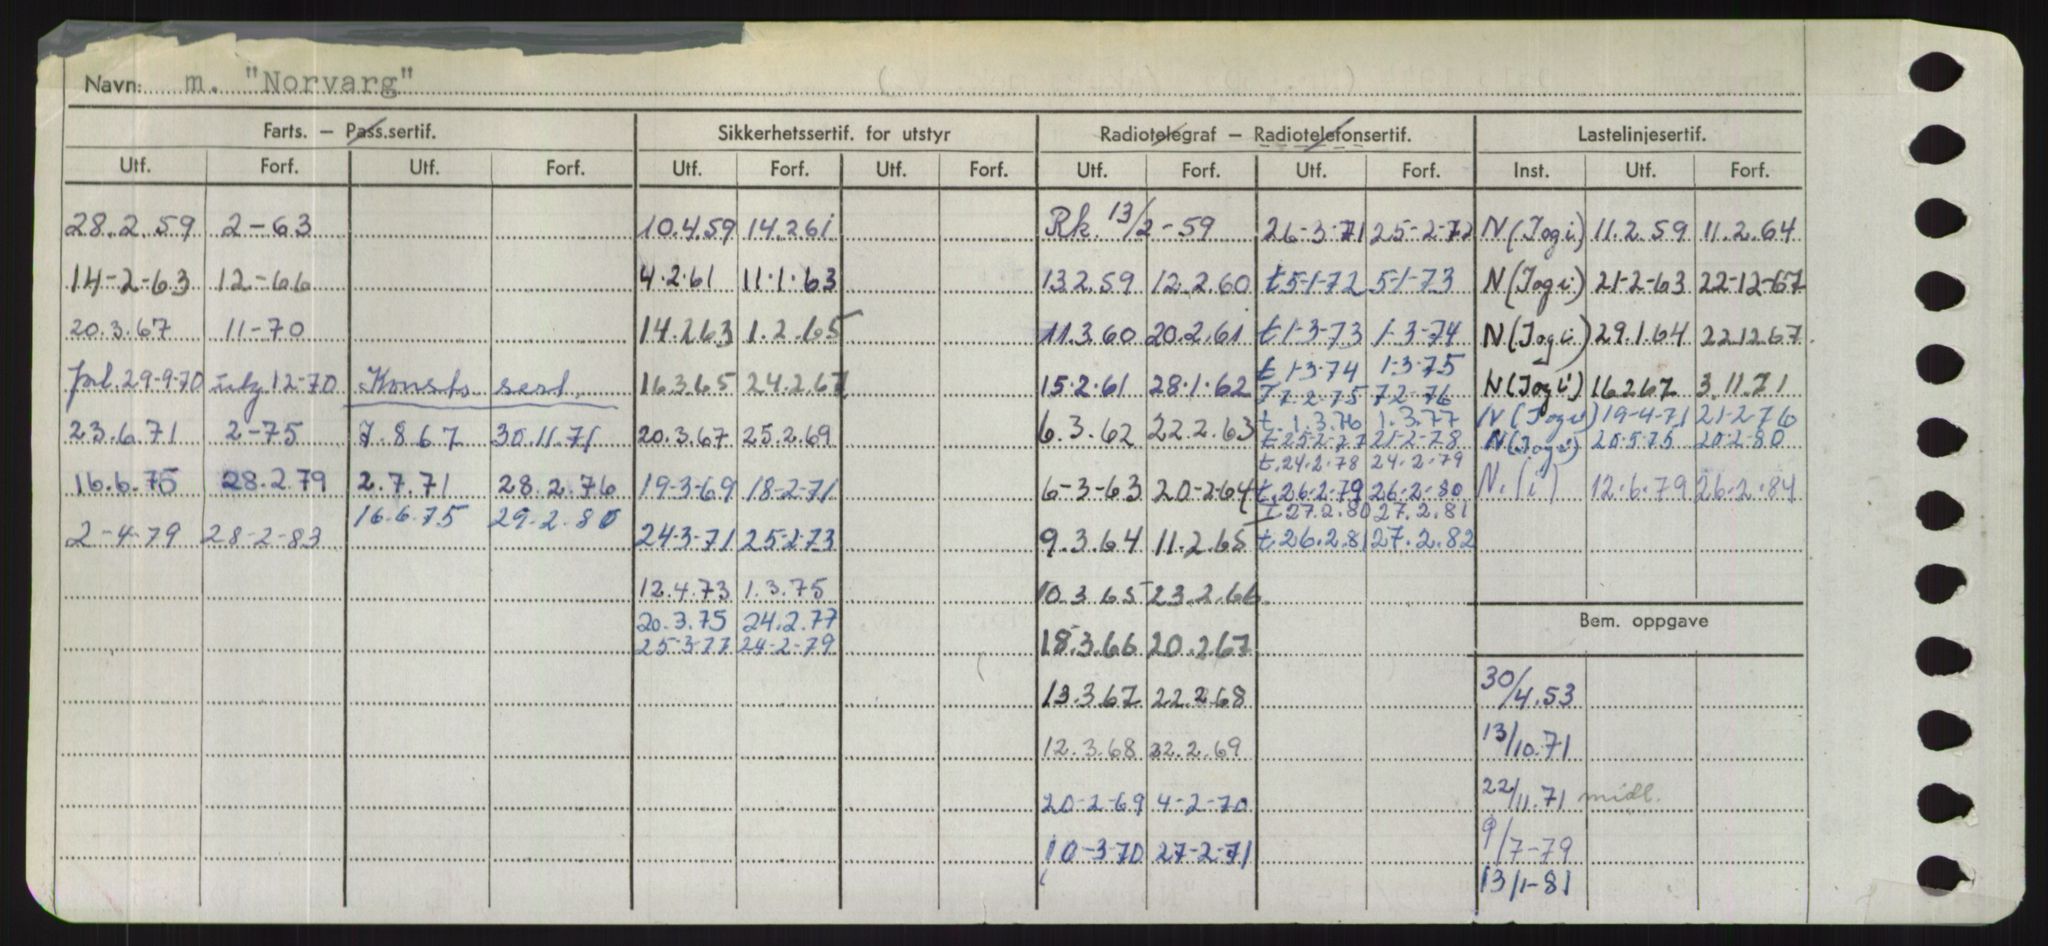 Navn: m. "Norvarg"
Farts. — Pass.sertif. Sikkerhetssertif. for utstyr Radiotelegraf — Radiotelefonsertif. Lastelinjesertif.
Utf. Forf. Utf. Forf. Utf. Forf. Utf. Forf. Utf. Forf. Utf. Forf. Inst. Utf. Forf.
28.2.59 2-63 10.4.59 14.2.61 Rk. 13/2-59 26-3-71 25-2-72 N(Jogi) 11.2.59 11.2.64
14-2-63 12-66 4.2.61 11.1.63 13.2.59 12.2.60 t 5-1-72 5-1-73 N(Jogi) 21-2-63 22-12-67
20.3.67 11-70 14.2.63 1.2.65 11.3.60 20.2.61 t 1-3-73 1-3-74 N(Jogi) 29.1.64 22.12.67
t 1-3-74 1-3-75
29-9-70 12-70 Konstr. sert. 16.3.65 24.2.67 15.2.61 28.1.62 T 7-2-75 7-2-76 N(Jogi) 16.2.67 3.11.71
t. 1.3.76 1.3.77 N(Jogi) 19-4-71 21-2-76
23.6.71 2-75 7.8.67 30.11.71 20.3.67 25.2.69 6.3.62 22.2.63 t. 25-2-77 21-2-78 N(Jogi) 20-5-75 20-2-80
t. 24.2.78 24.2.79
16.6.75 28.2.79 2.7.71 28.2.76 19-3-69 18-2-71 6-3-63 20-2-64 t. 26.2.79 26.2.80 N.(i) 12.6.79 26.2.84
16.6.75 29.2.80 t. 27.2.80 27.2.81
2-4-79 28-2-83 24-3-71 25-2-73 9.3.64 11.2.65 t. 26.2.81 27.2.82
12.4.73 1.3.75 10.3.65 23.2.66
20.3.75 24.2.77 Bem. oppgave
25-3-77 24-2-79 18.3.66 20.2.67
13.3.67 22.2.68 30/4.53
12.3.68 22.2.69 13/10.71
20-2-69 4-2-70 22/11.71 midl.
10-3-70 27-2-71 9/7-79
13/1-81